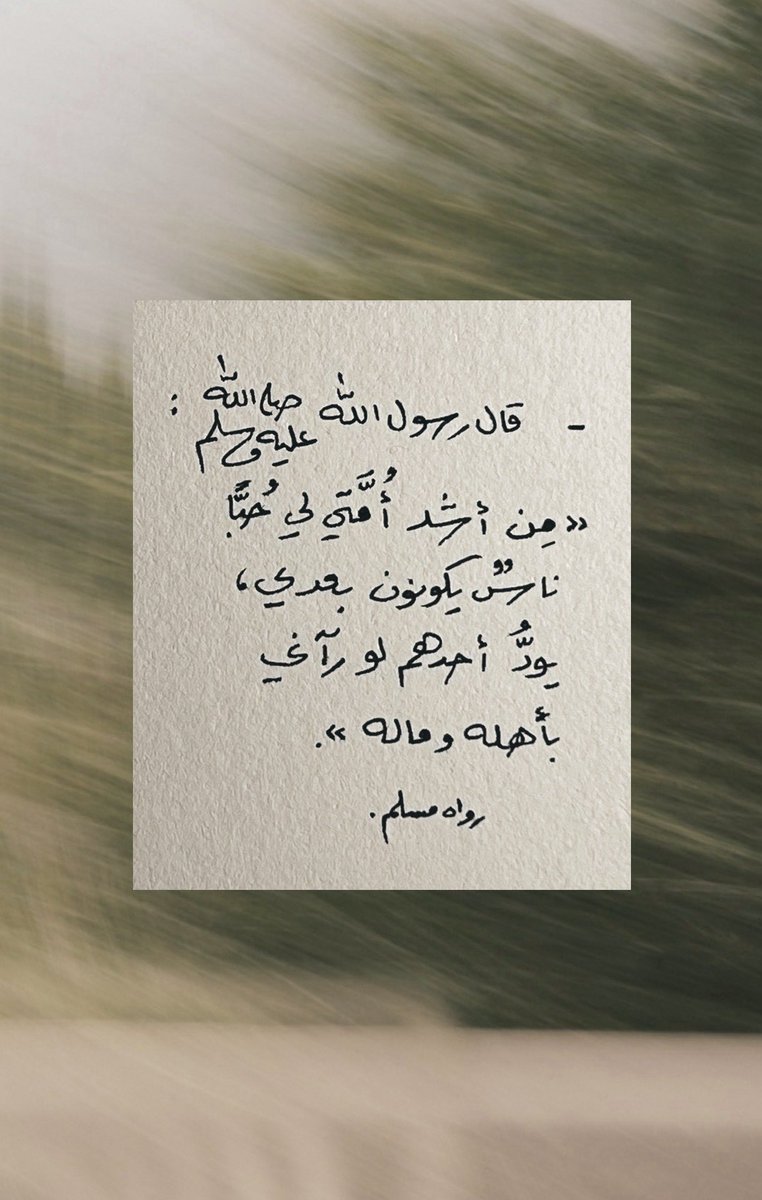 - قال رسول الله صلى الله عليه وسلم :
«مِن أشد أُمَّتي لي حُبًّا
ناسٌ يكونون بعدي،
يودُّ أحدهم لو رآني
بأهله وماله».
رواه مسلم.